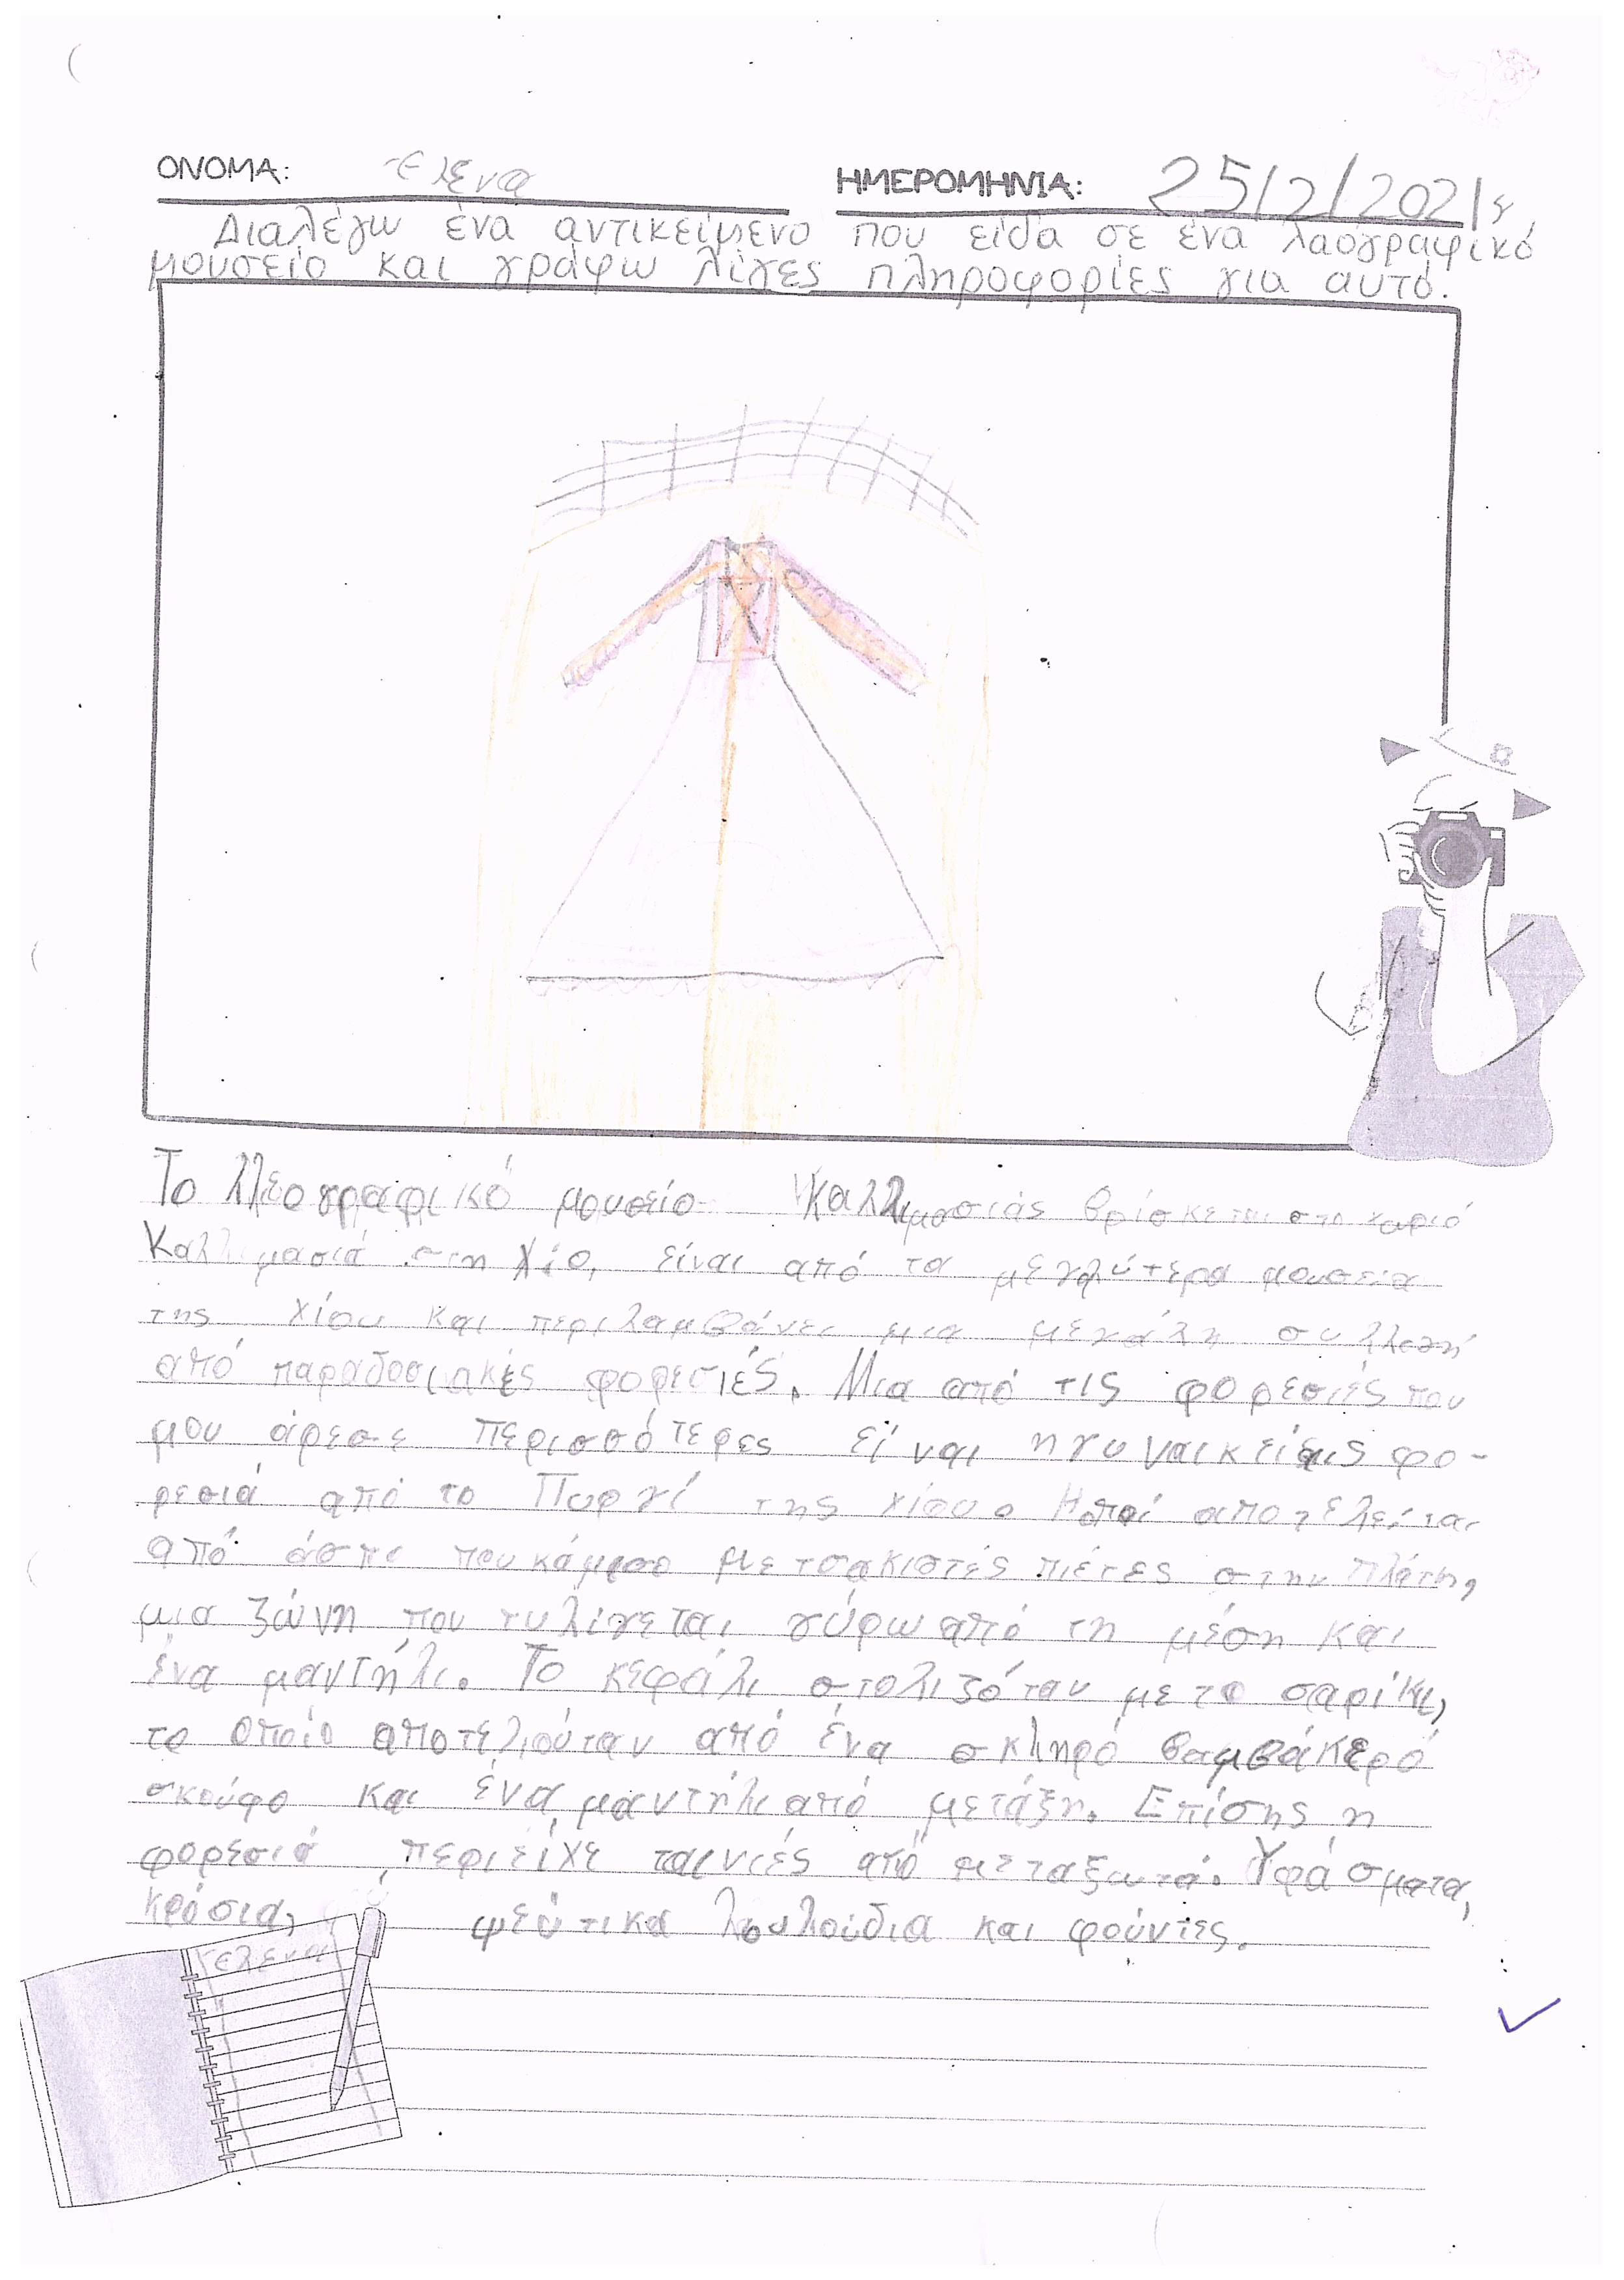 ΟΝΟΜΑ: Ελενα ΗΜΕΡΟΜΗΝΙΑ: 25/2/2021
Διαλέγω ένα αντικείμενο που είδα σε ένα λαογραφικό
μουσείο και γράφω λίγες πληροφορίες για αυτό.
Το μουσείο Καλλιμασιάς βρίσκεται στο χωριό
Καλλιμασιά στη Χίο, είναι από τα μεγαλύτερα μουσεία
της Χίου και περιλαμβάνει μια μεγάλη
από παραδοσιακές φορεσιές. Μια από τις φορεσιές που
μου άρεσε περισσότερες είναι η φο-
ρεσιά από το Πυργί της Χίου. αποτελείται
από πουκάμισο με τσακιστές πιέτες στην πλάτη,
μια ζώνη που τυλίγεται γύρω από τη μέση και
ένα μαντήλι. Το κεφάλι στολιζόταν με το σαρίκι,
το οποίο αποτελιούταν από ένα σκληρό βαμβάκερό
σκούφο και ένα μαντήλι από μετάξη. Επίσης η
φορεσιά περιείχε ταινιές από μεταξωτά. Υφάσματα,
κρόσια, ψεύτικα λουλούδια και φούντες.